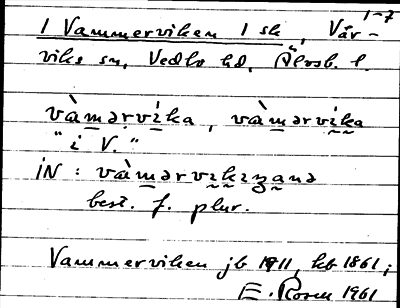 1-7
1 Vammerviken 1 sk, Vår-
viks sn, Vedbo hd, Älvsb. l.
vàmərvika, vàmərvika
"i V."
iN: vàmərvikiʒanə
best. f. plur.
Vammerviken jb 1911, kb 1861;
E. Rosen 1961